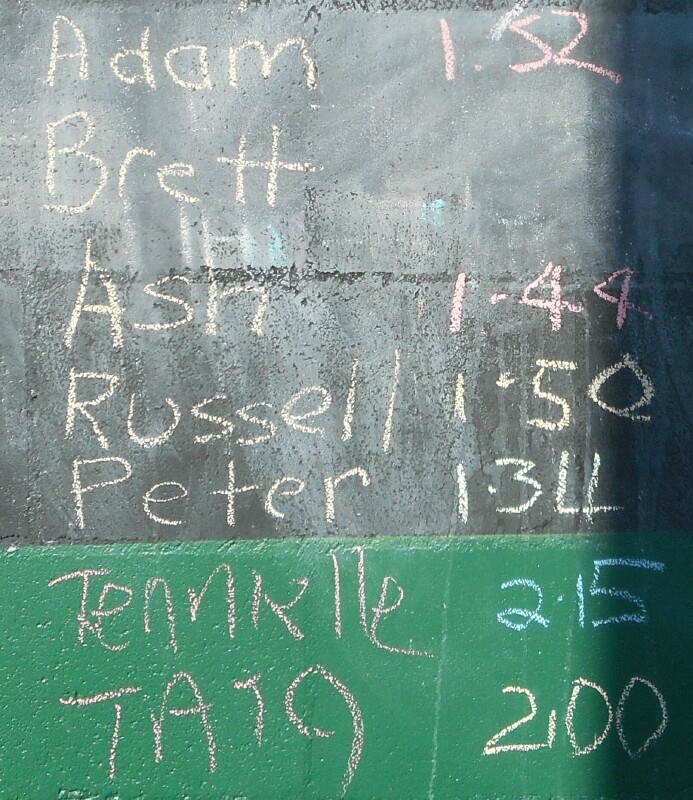 Adam 1.52
Brett
Ash 1.44
Russell 1.50
Peter 1.34
Tennille 2.15
2.00